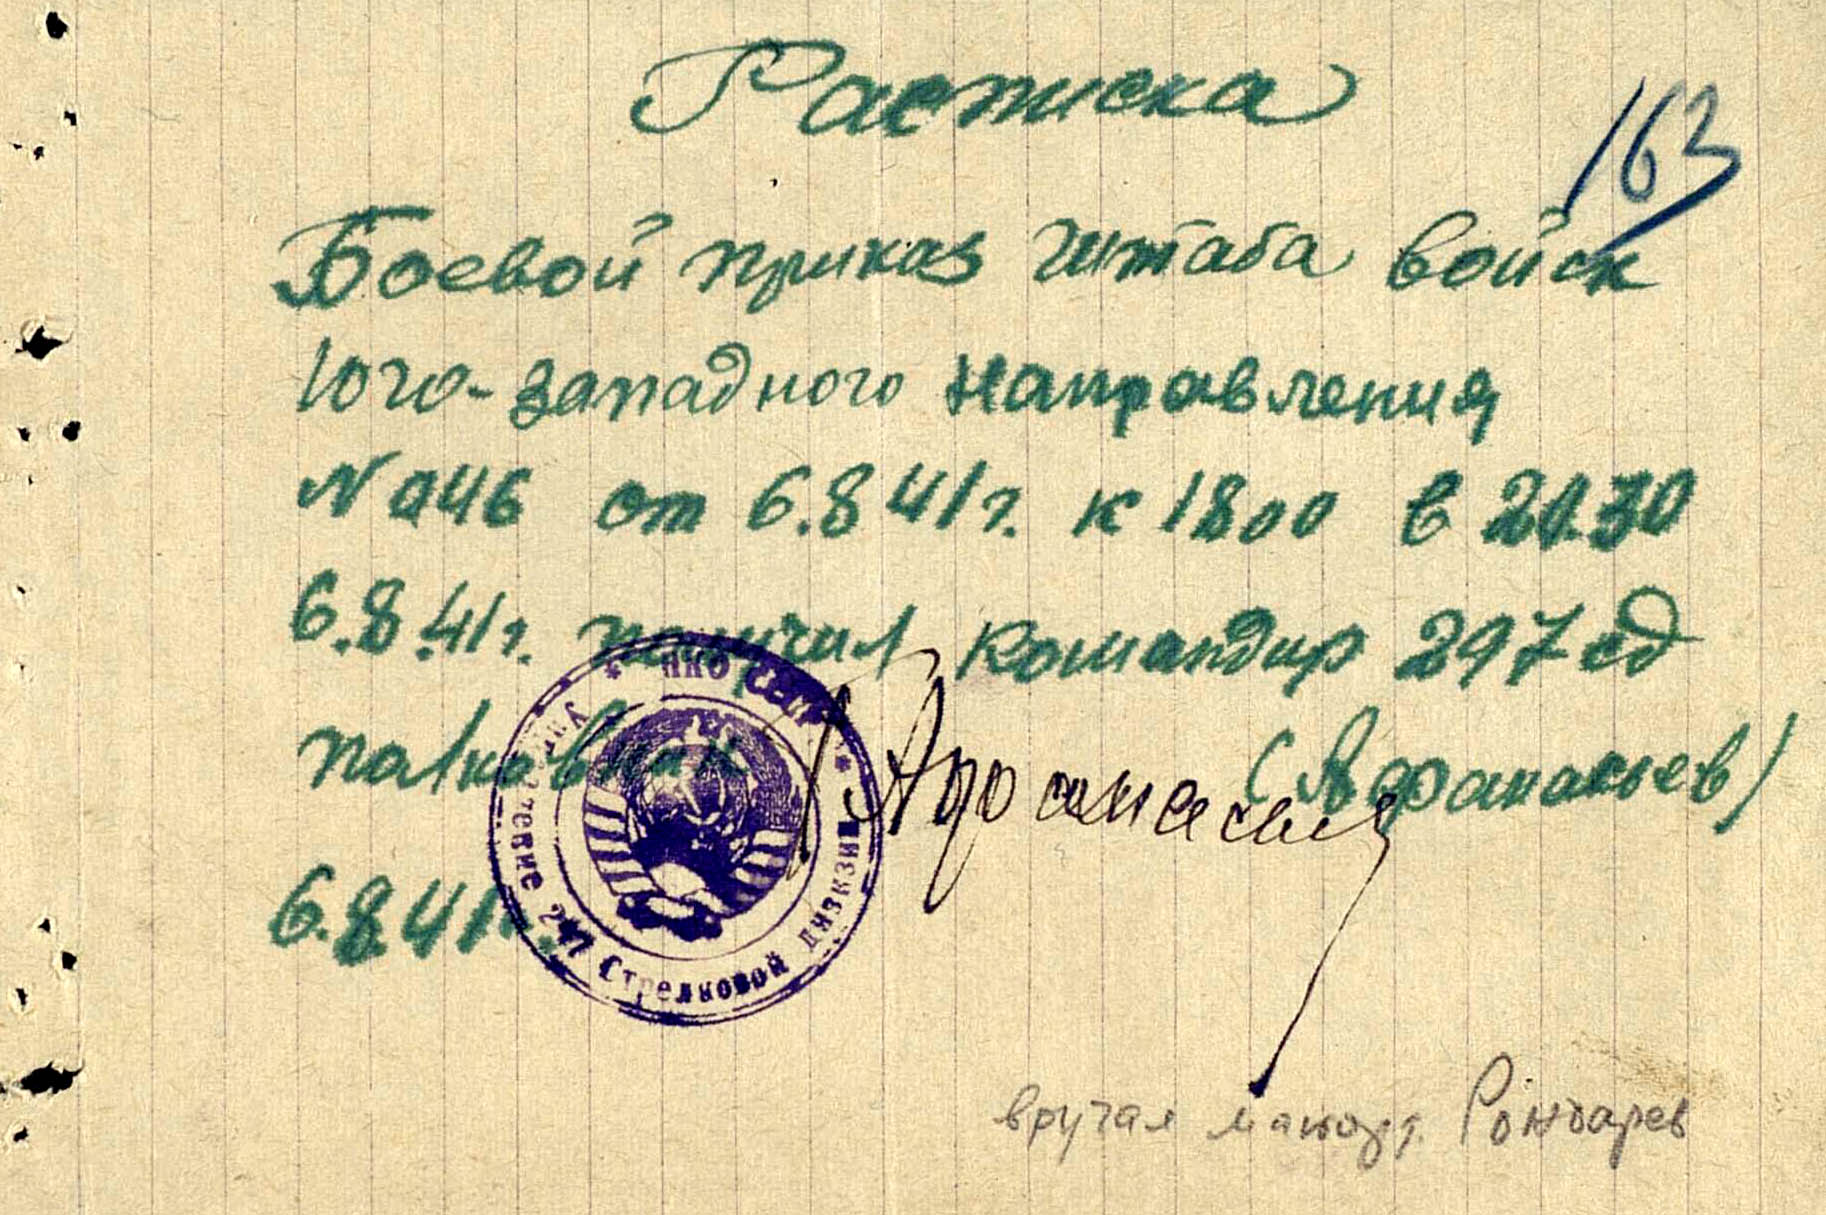 Расписка
163
Боевой приказ штаба войск
Юго-западного направления
N а46 от 6.8 41г. к 1800 в 20.30
6.8.41г. получил командир 297 сд
полковник Афанасьев (Афанасьев)
6.8.41г.
НКО СССР
Управление 297 Стрелковой дивизии
вручал майор Гончарев